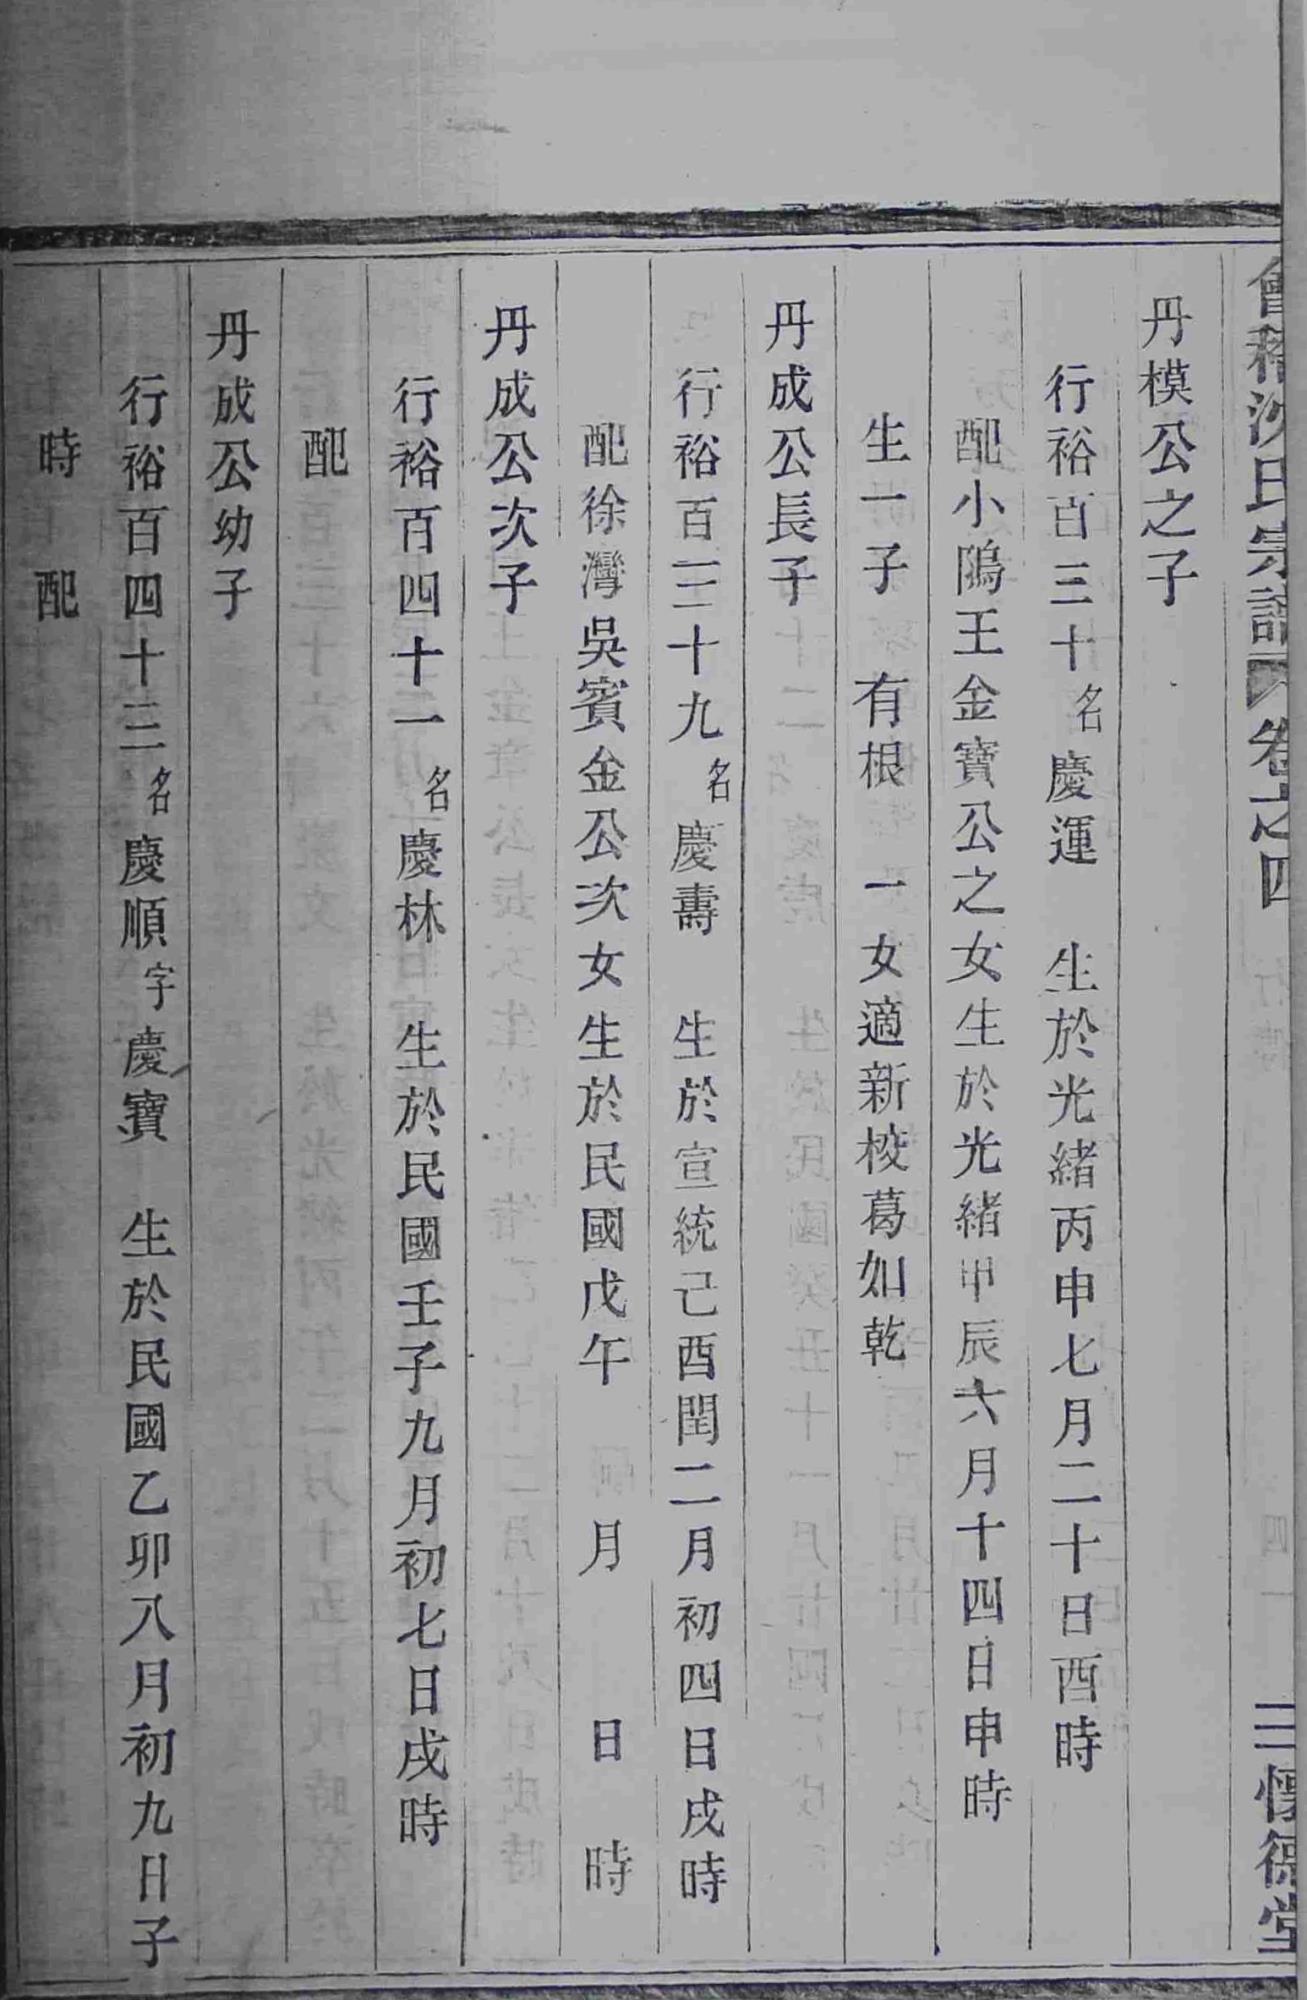 會稽沈氏宗譜 卷之四 三懷德堂
丹模公之子
行裕百三十名慶運 生於光緒丙申七月二十日酉時
配小隝王金寶公之女生於光緒甲辰六月十四日申時
生一子 有根 一女適新校葛如乾
丹成公長子
行裕百三十九名慶壽 生於宣統己酉閏二月初四日戌時
配徐灣吳賓金公次女生於民國戊午 月 日 時
丹成公次子
行裕百四十一名慶林 生於民國壬子九月初七日戌時
配
丹成公幼子
行裕百四十二名慶順字慶寶 生於民國乙卯八月初九日子
時 配